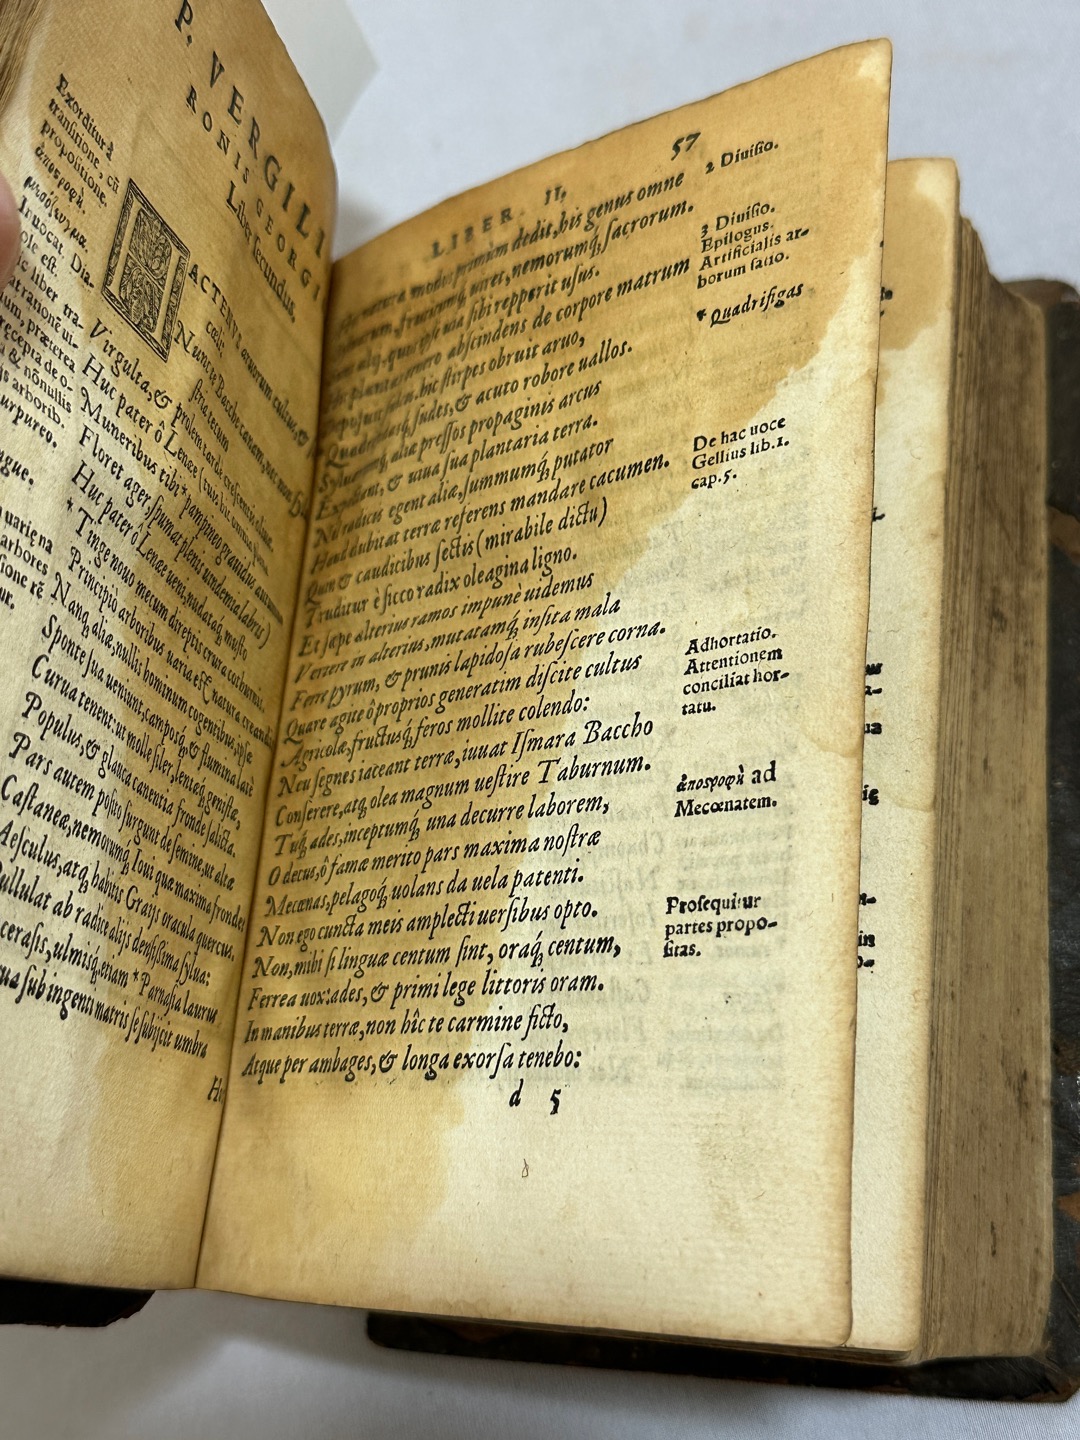 P. VERGILI
RONIS GEORGI
Liber secundus.
Exorditur à
transitione, cũ
propositione.
ἀποςροφὴ.
μεσόζευγμα.
Inuocat. Dia-
ole est.
liber tra-
ratione ui-
um, præterea
recepta de o-
& nõnullis
s arborib.
urpureo.
gue.
uarię na
arbores
ione rē
ur.
HACTENVS aruorum cultus, &
cœli:
Nunc te Bacche canam, nec non
stria tecum
Virgulta, & prolem tarde crescentis oliuæ.
Huc pater ô Lenæe (tuis hic omnia plena
Muneribus tibi * pampineo grauidus autumno
Floret ager, spumat plenis uindemia labris)
Huc pater ô Lenæe ueni, nudataq́; musto
* Tinge nouo mecum direptis crura cothurnis.
Principiò arboribus uaria est natura creandis
Nanq; aliæ, nullis hominum cogentibus, ipsæ
Sponte sua ueniunt, camposq́; & flumina latè
Curua tenent: ut molle siler, lentæq́; genistæ,
Populus, & glauca canentia fronde salicta.
Pars autem posito surgunt de semine, ut altæ
Castaneæ, nemorumq́; Ioui quæ maxima frondet
Aesculus, atq; habitæ Graijs oracula quercus.
Pullulat ab radice alijs densissima sylua:
cerasis, ulmisq́; etiam * Parnasia laurus
ua sub ingenti matris se subijcit umbra
57
LIBER. II.
natura modos primùm dedit, his genus omne
fruticumq́; uiret, nemorumq́; sacrorum.
alij, quos ipse uia sibi repperit usus.
plantas tenero abscindens de corpore matrum
hic stirpes obruit aruo,
Quadrifidasq́; sudes, & acuto robore uallos.
Syluarumq́; aliæ pressos propaginis arcus
Expectant, & uiua sua plantaria terra.
Nil radicis egent aliæ, summumq́; putator
Haud dubitat terræ referens mandare cacumen.
Quin & caudicibus sectis (mirabile dictu)
Truditur è sicco radix oleagina ligno.
Et sæpe alterius ramos impunè uidemus
Vertere in alterius, mutatamq́; insita mala
Ferre pyrum, & prunis lapidosa rubescere corna.
Quare agite ô proprios generatim discite cultus
Agricolæ, fructusq́; feros mollite colendo:
Neu segnes iaceant terræ, iuuat Ismara Baccho
Conserere, atq; olea magnum uestire Taburnum.
Tuq́; ades, inceptumq́; una decurre laborem,
O decus, ô famæ merito pars maxima nostræ
Mecœnas, pelagoq́; uolans da uela patenti.
Non ego cuncta meis amplecti uersibus opto.
Non, mihi si linguæ centum sint, oraq́; centum,
Ferrea uox: ades, & primi lege littoris oram.
In manibus terræ, non hîc te carmine ficto,
Atque per ambages, & longa exorsa tenebo:
d 5
2 Diuisio.
3 Diuisio.
Epilogus.
Artificialis ar-
borum satio.
* Quadrifigas
De hac uoce
Gellius lib. 1.
cap. 5.
Adhortatio.
Attentionem
conciliat hor-
tatu.
ἀποςροφὴ ad
Mecœnatem.
Prosequitur
partes propo-
sitas.